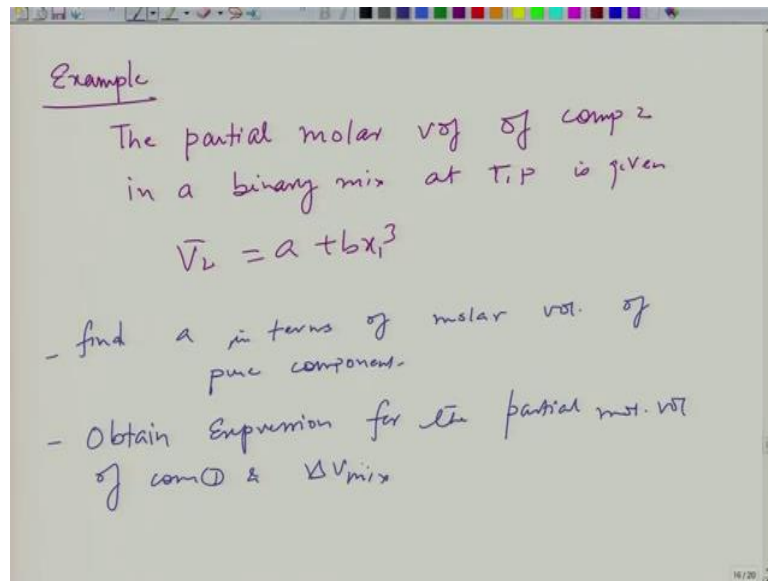 Example
The partial molar vol of comp 2
in a binary mix at T,P is given
V̄₂ = a + bx₁³
- find a in terms of molar vol. of
pure component.
- Obtain Expression for the partial mol. vol
of com① & ΔVmix
16/20